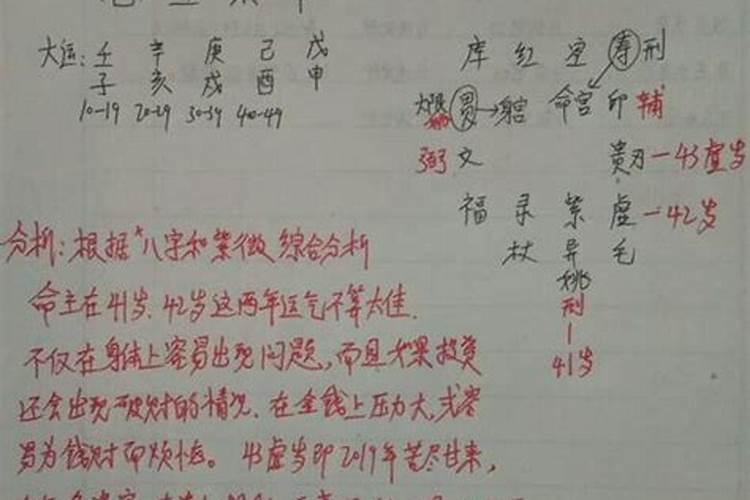 大运: 壬 辛 庚 己 戊
子 亥 戌 酉 申
10-19 20-29 30-39 40-49
库 红 空 寿 刑
大限 贯 → 身宫 命宫 印 辅
弼 文 贵刃-43虚岁
福 录 紫 虚-42岁
杖 异 毛
姚
刑
41岁
分析: 根据"八字和紫微综合分析
命主在41岁、42岁这两年运气不算太佳.
不仅在身体上容易出现问题, 而且如果投资
还会出现破财的情况. 在金钱上压力大, 或容
易为钱财而烦恼。 43虚岁即2019年苦尽甘来,